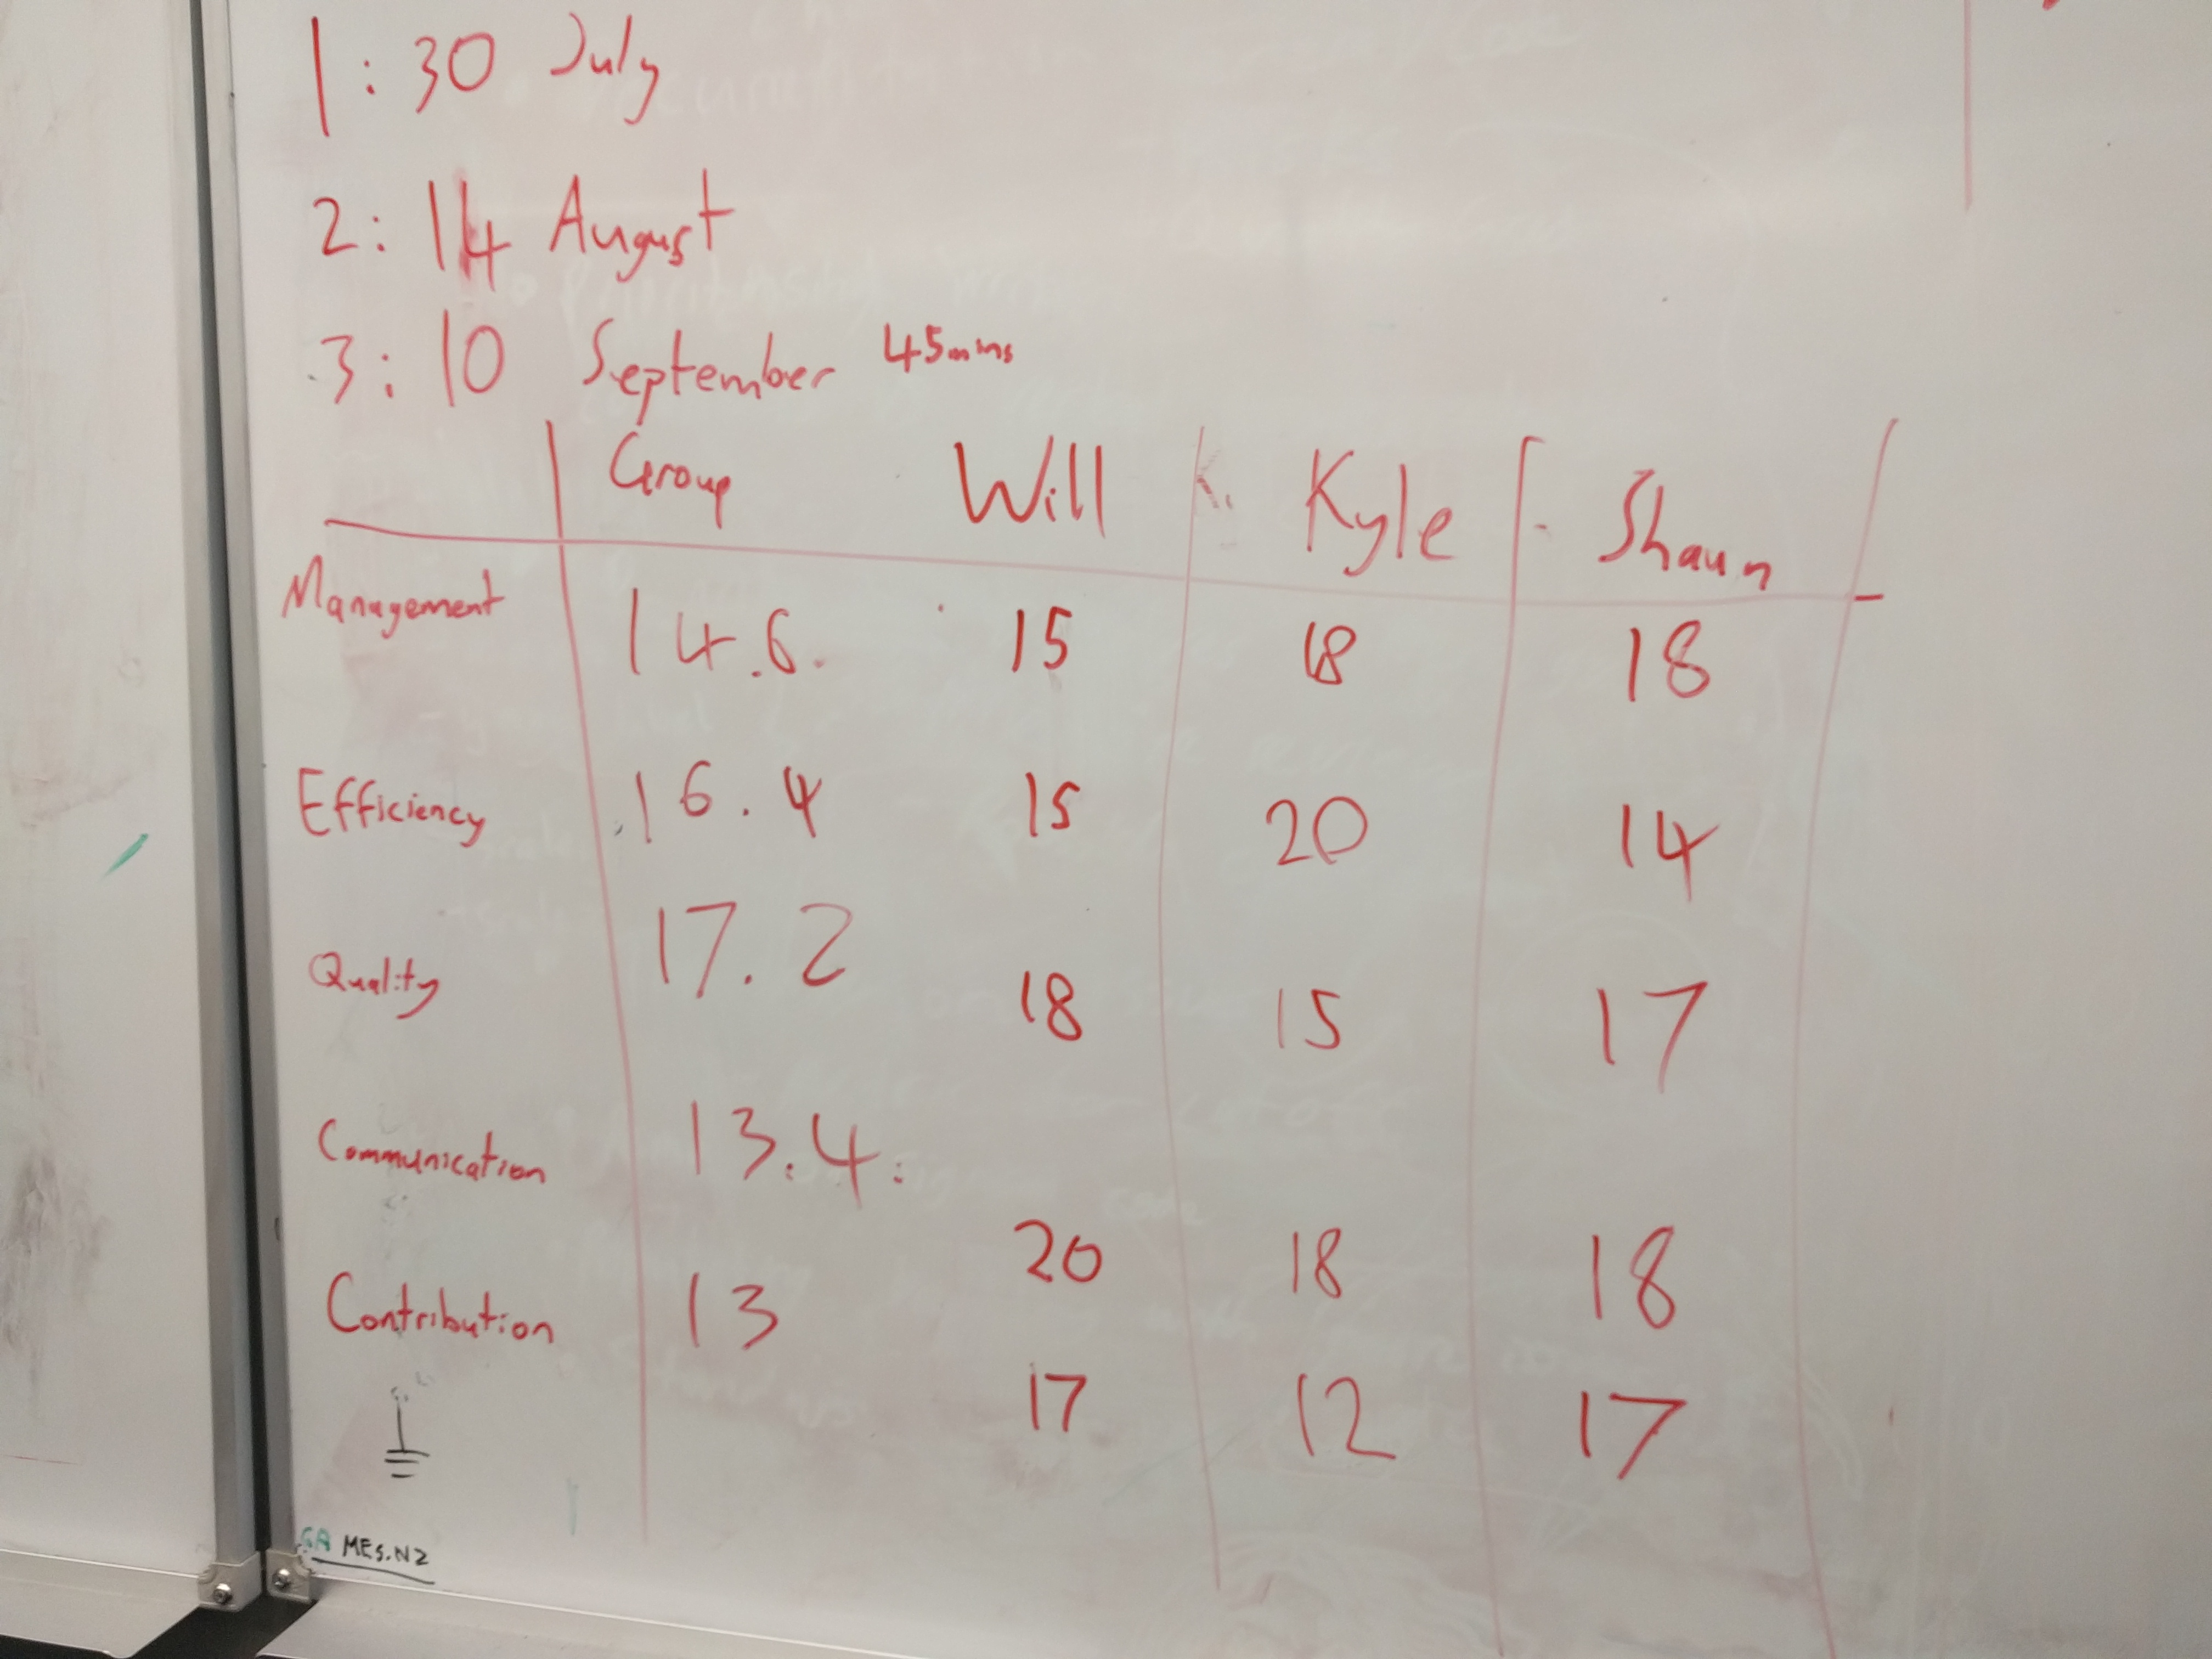 1: 30 July
2: 14 August
3: 10 September 45mins
Group Will K. Kyle Shaun
Management 14.6. 15 18 18
Efficiency 16.4 15 20 14
Quality 17.2 18 15 17
Communication 13.4. 20 18 18
Contribution 13 17 12 17
GAMES.NZ